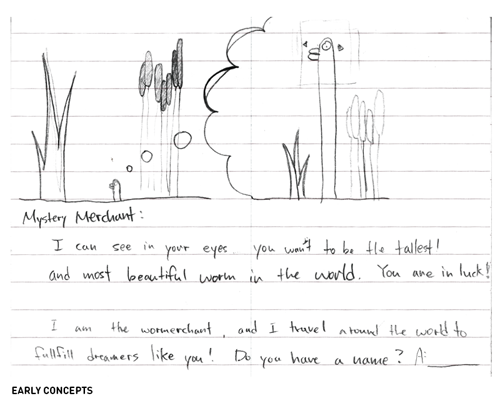 Mystery Merchant:
I can see in your eyes you want to be the tallest!
and most beautiful worm in the world. You are in luck!
I am the wormerchant, and I travel around the world to
fullfill dreamers like you! Do you have a name? A:______
EARLY CONCEPTS